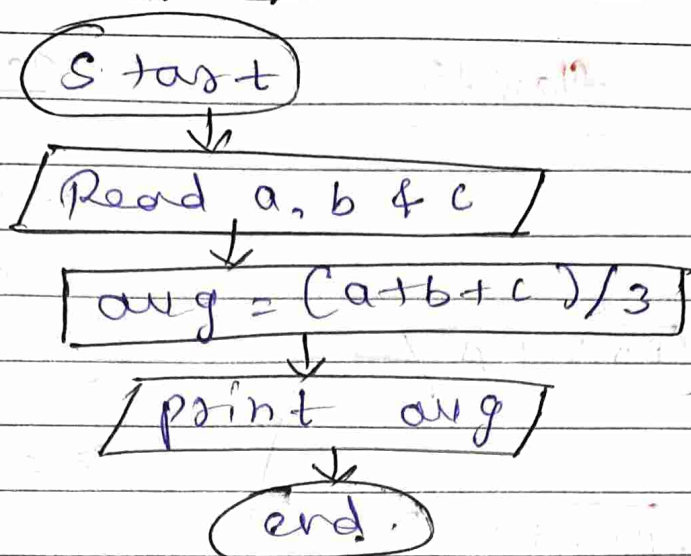 Start
Read a, b & c
avg = (a+b+c)/3
print avg
end.